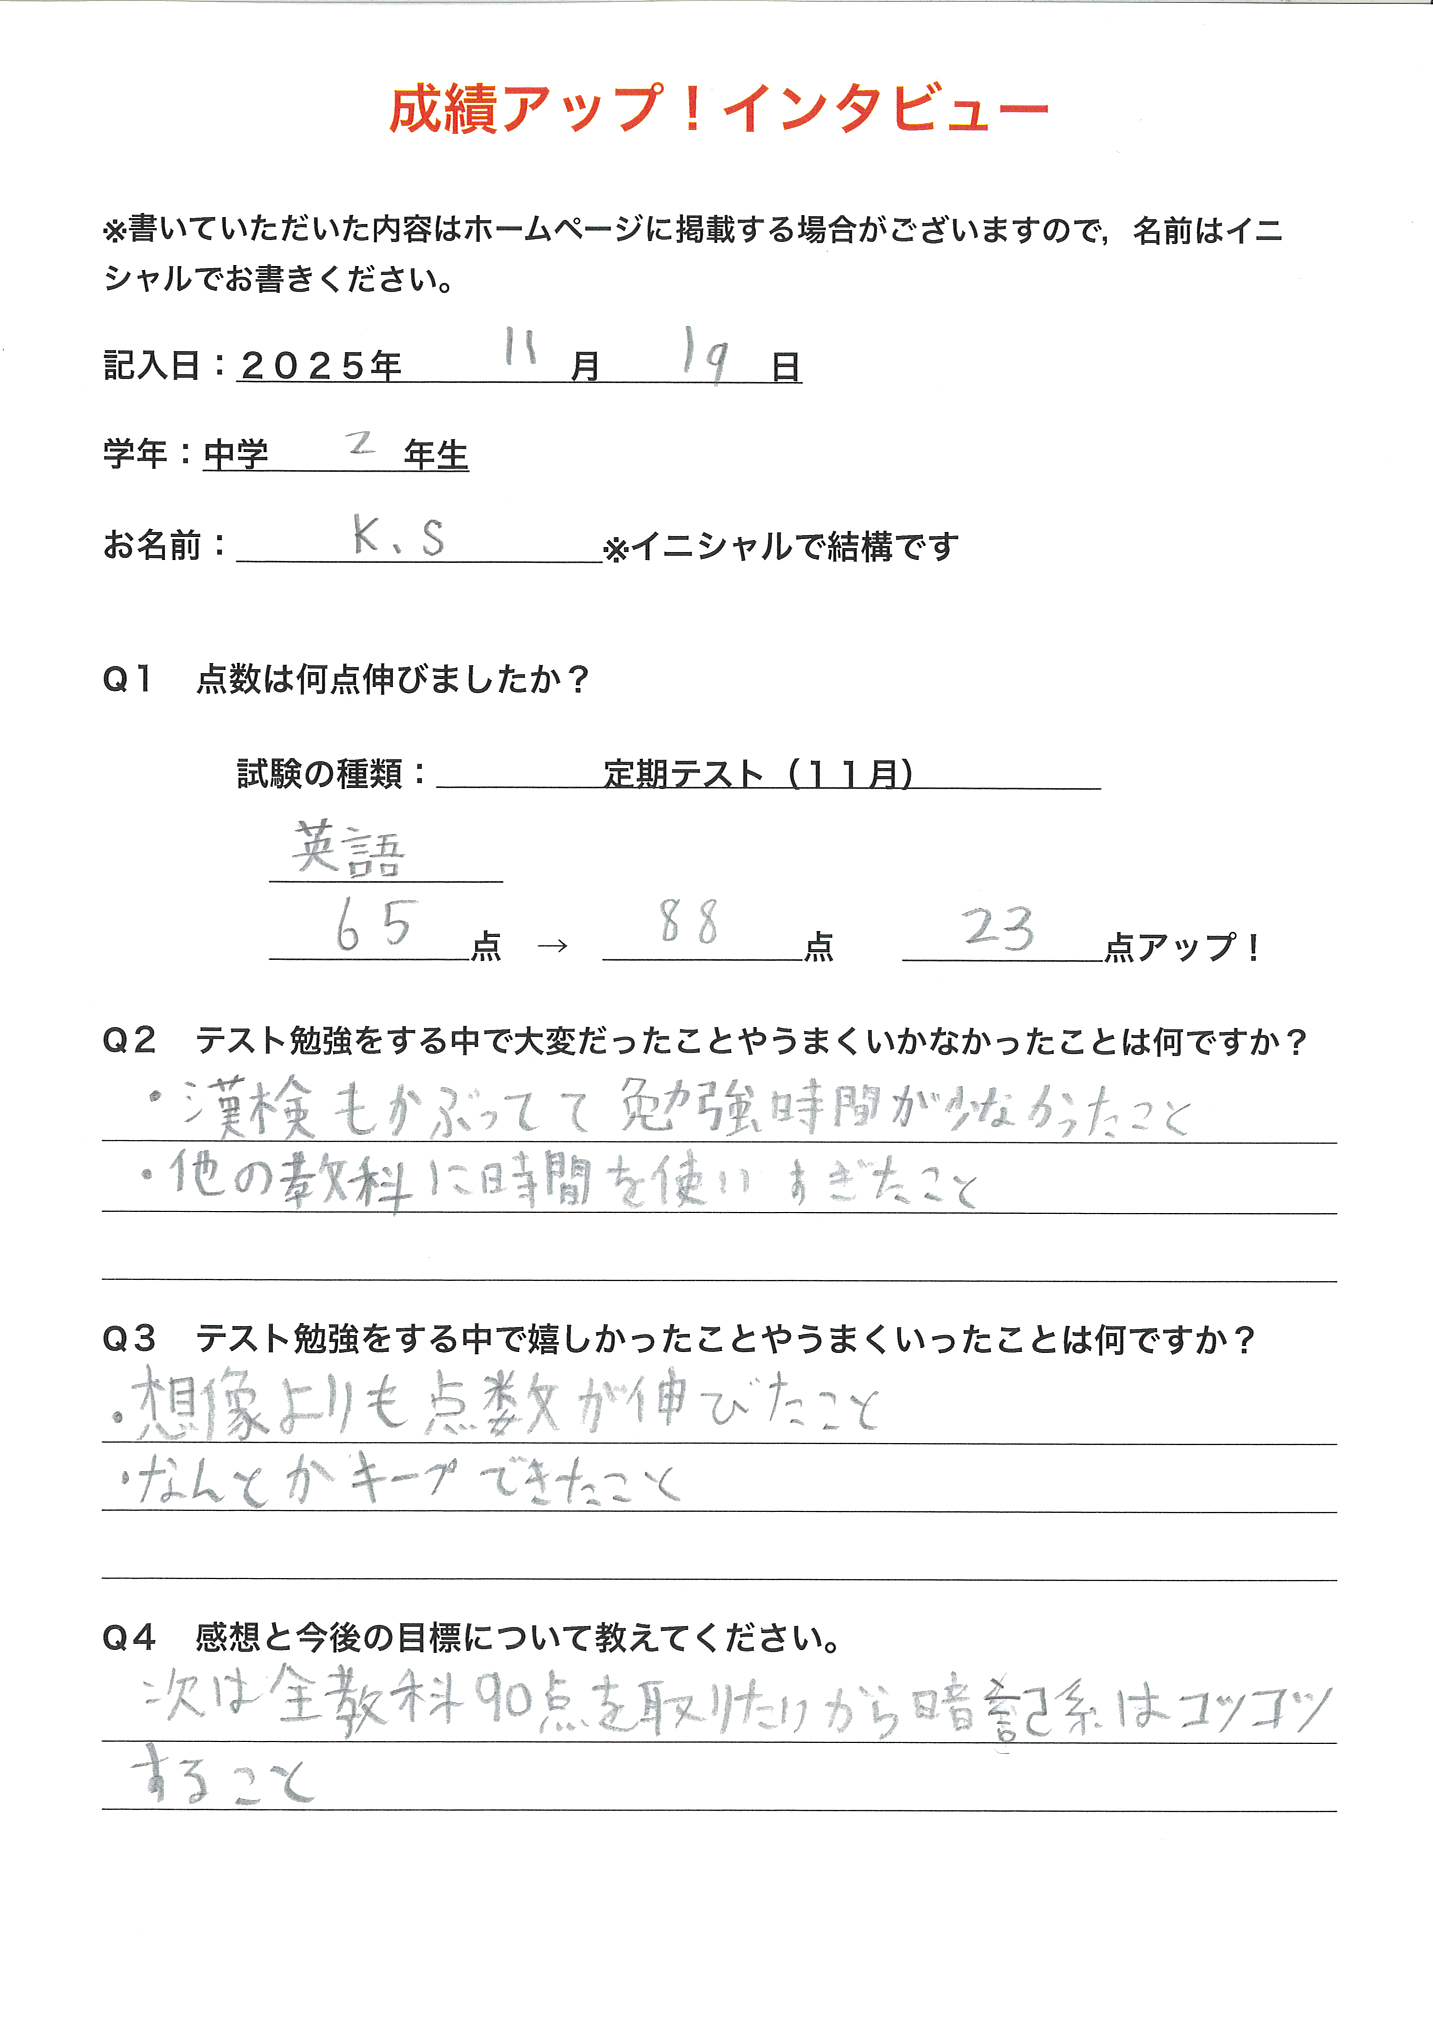 成績アップ！インタビュー
※書いていただいた内容はホームページに掲載する場合がございますので，名前はイニ
シャルでお書きください。
記入日：２０２５年 11 月 19 日
学年：中学 2 年生
お名前： K、S ※イニシャルで結構です
Q１　点数は何点伸びましたか？
試験の種類： 定期テスト（１１月）
英語
65 点 → 88 点 23 点アップ！
Q２　テスト勉強をする中で大変だったことやうまくいかなかったことは何ですか？
・漢検もかぶってて勉強時間が少なかったこと
・他の教科に時間を使いすぎたこと
Q３　テスト勉強をする中で嬉しかったことやうまくいったことは何ですか？
・想像よりも点数が伸びたこと
・なんとかキープできたこと
Q４　感想と今後の目標について教えてください。
次は全教科90点を取りたいから暗記系はコツコツ
すること